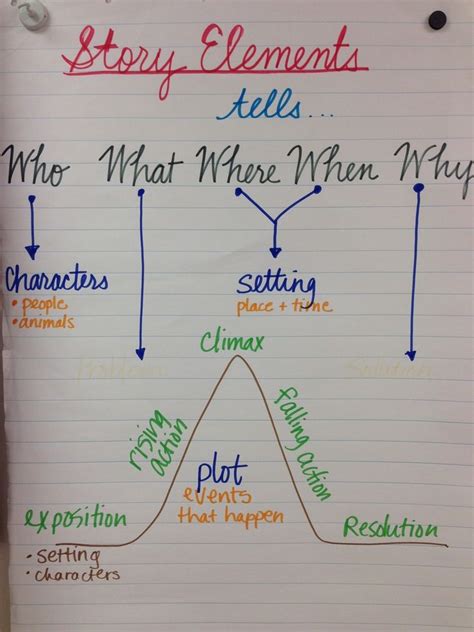 Story Elements
tells...
Who What Where When Why
Characters
• people
• animals
setting
place + time
Problem
Solution
Climax
rising action
falling action
plot
events
that happen
exposition
• setting
• characters
Resolution